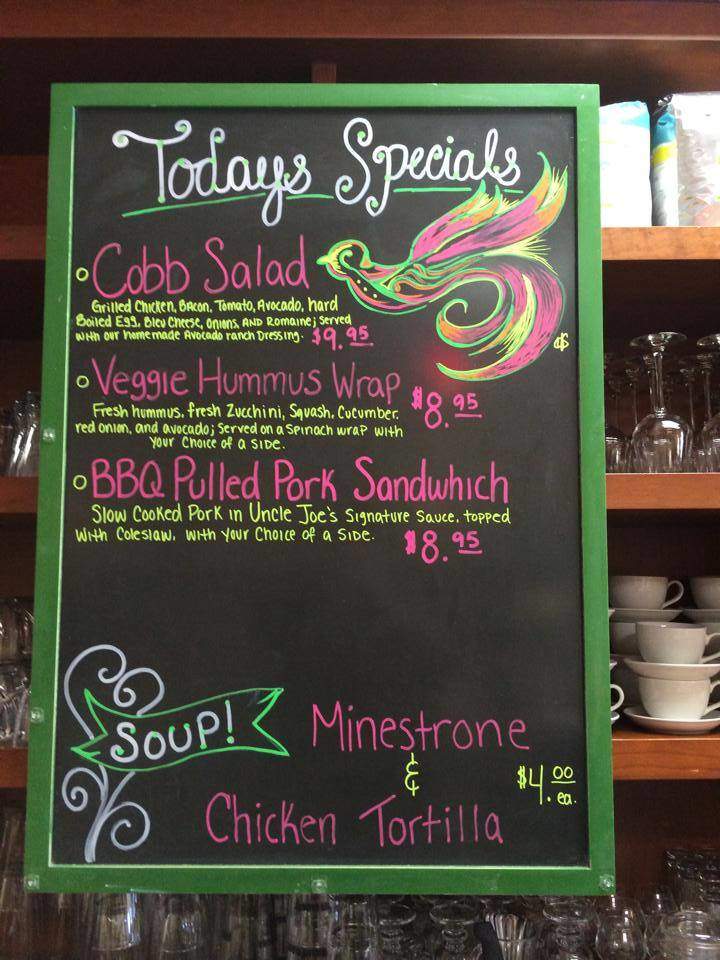 Todays Specials
Cobb Salad
Grilled Chicken, Bacon, Tomato, Avocado, hard
Boiled Egg, Bleu Cheese, onions, AND Romaine; served
with our homemade Avocado ranch Dressing. $9.95
Veggie Hummus Wrap
$8.95
Fresh hummus, fresh Zucchini, Squash, Cucumber,
red onion, and avocado; served on a spinach wrap with
your choice of a side.
BBQ Pulled Pork Sandwhich
Slow Cooked Pork in Uncle Joe's Signature Sauce, topped
with Coleslaw, with your choice of a side. $8.95
Soup!
Minestrone
& $4.00 ea.
Chicken Tortilla